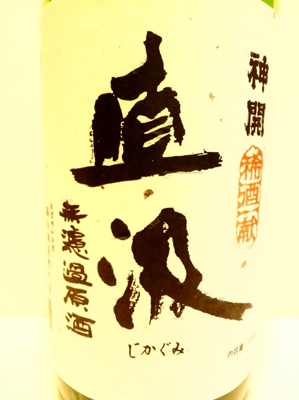 神開
稀酒一献
直汲
無濾過原酒
じかぐみ
内容量